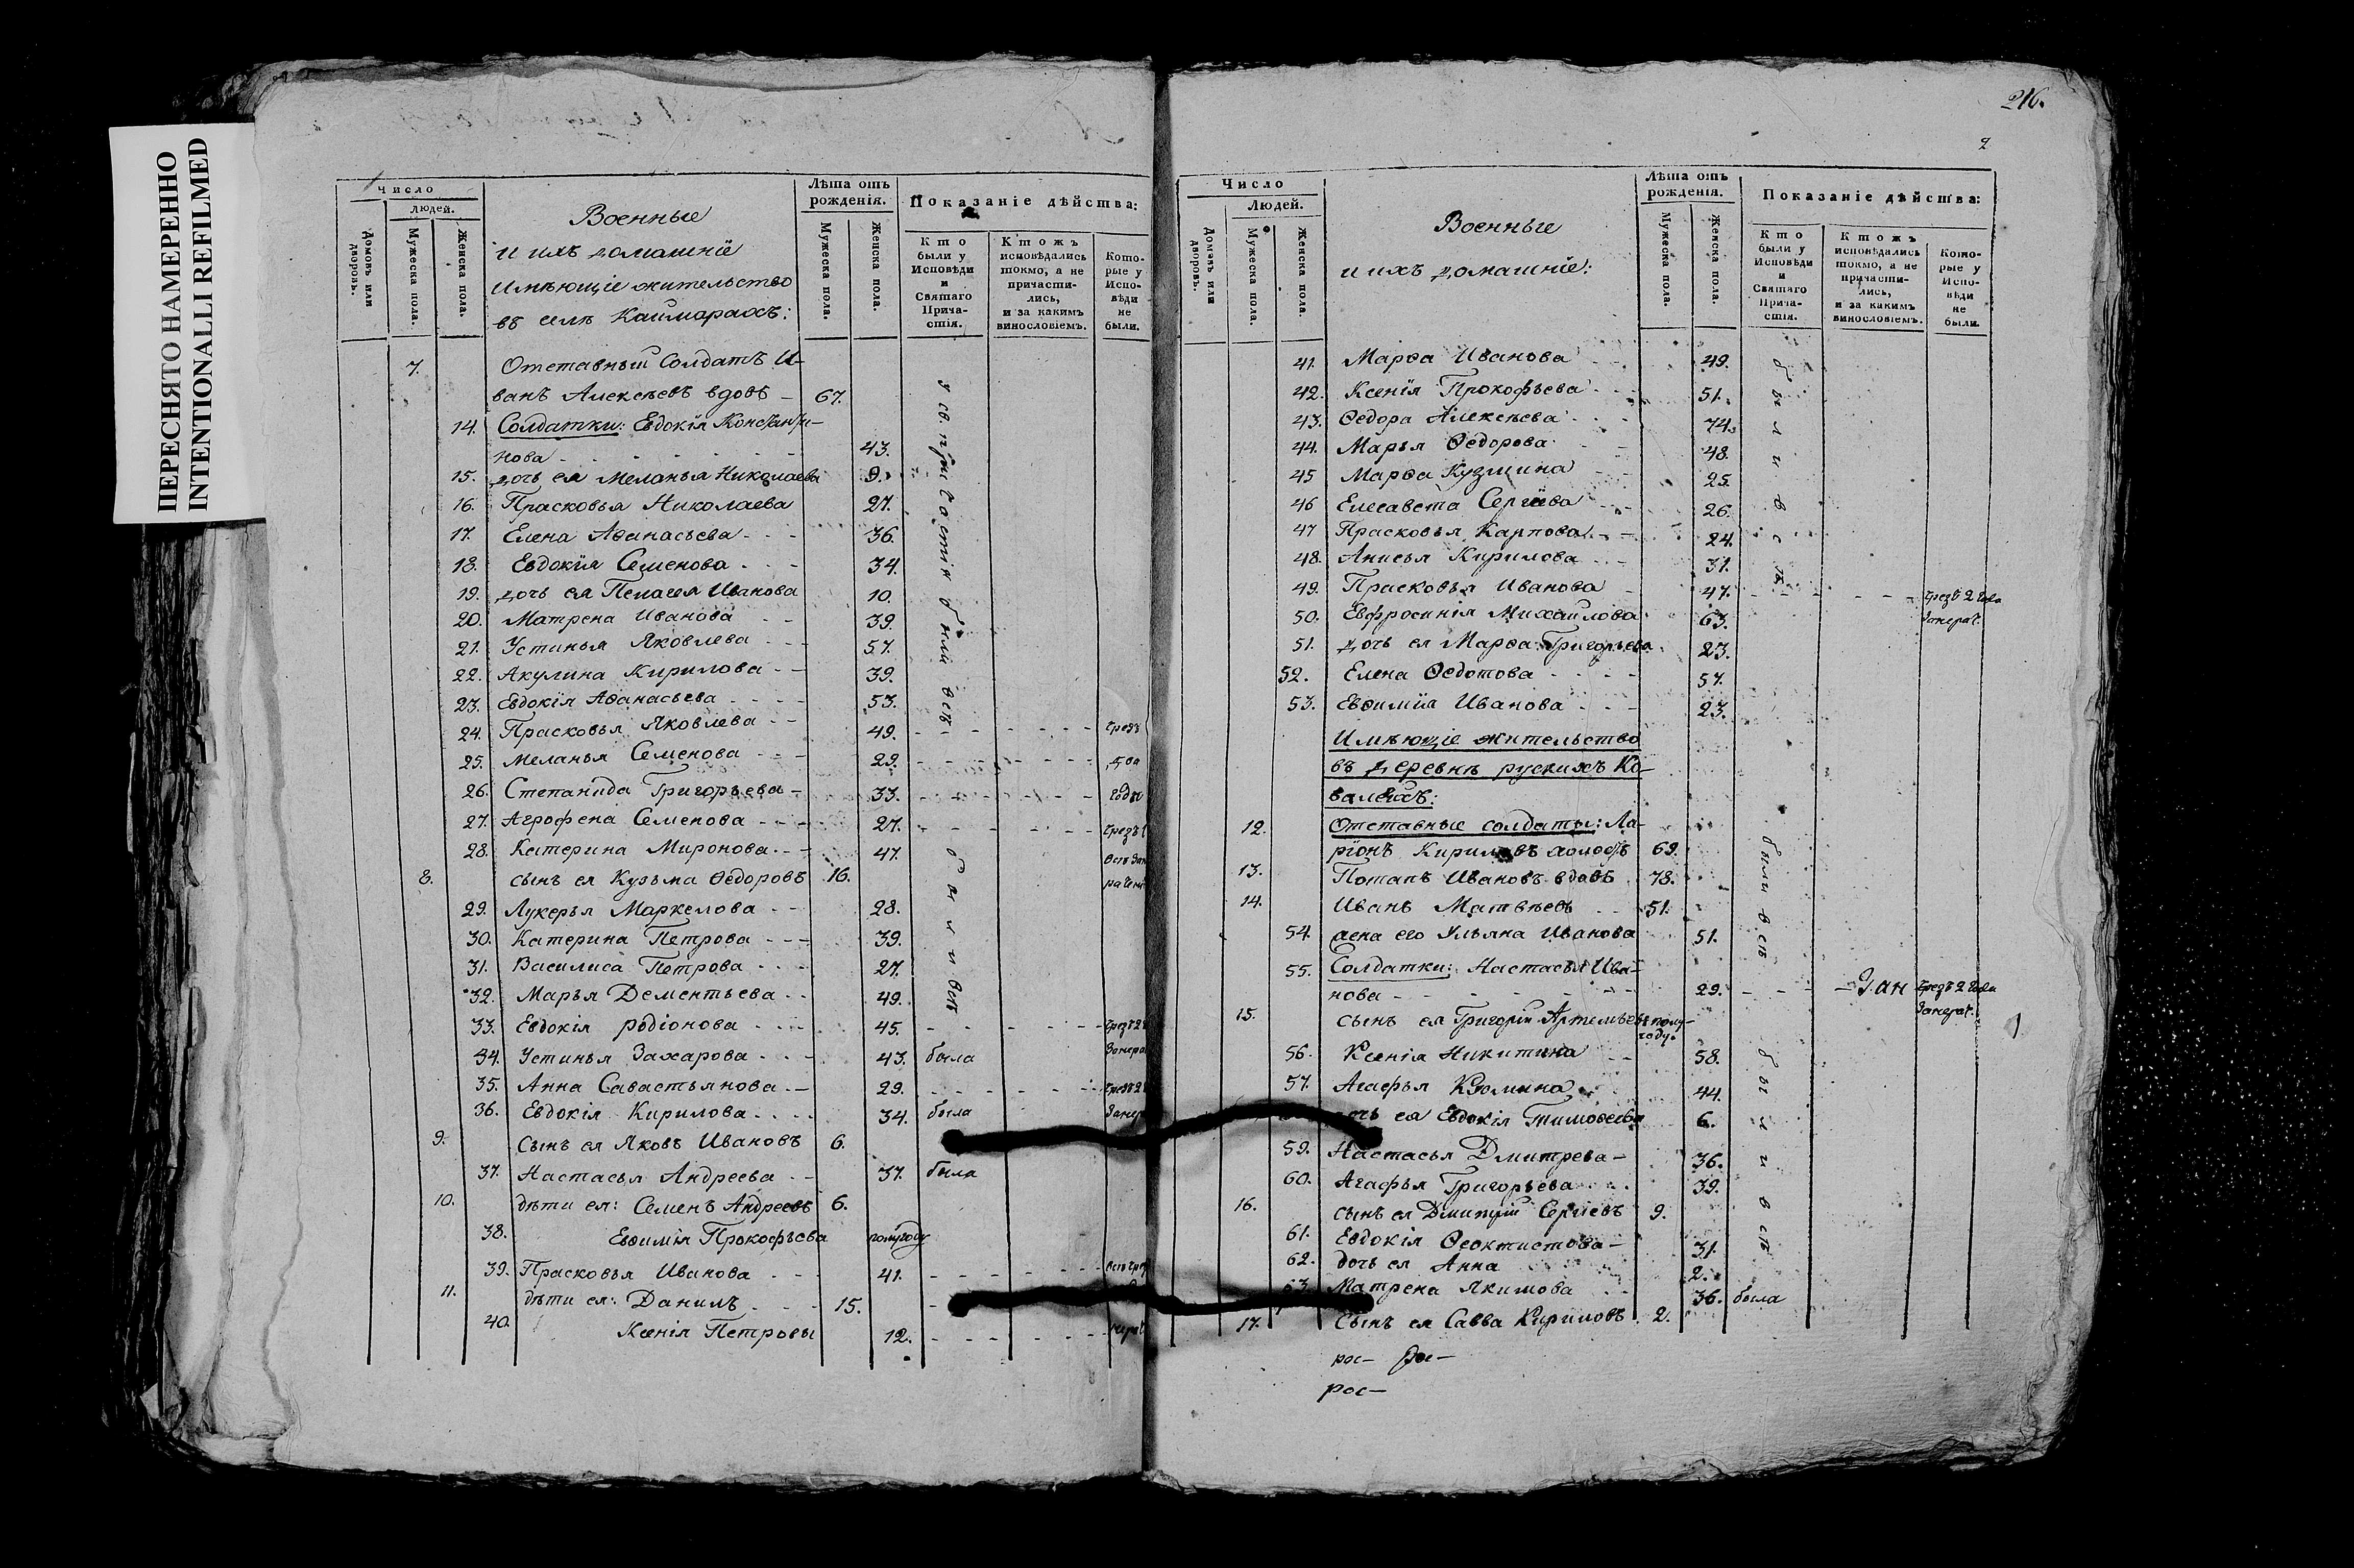 ПЕРЕСНЯТО НАМЕРЕННО
INTENTIONALLI REFILMED
Число
людей.
Домовъ или дворовъ.
Мужеска пола.
Женска пола.
Военные
и ихъ домашнїе
имѣющїе жительство
въ селѣ Каимарахъ:
Лѣта отъ рожденїя.
Мужеска пола.
Женска пола.
Показанїе дѣйства:
Кто были у Исповѣди и Святаго Причастїя.
Ктожъ исповѣдались токмо, а не причастились, и за какимъ винословїемъ.
Которые у Исповѣди не были.
7. Отставный Солдатъ И-
ванъ Алексѣевъ вдовъ 67.
14. Солдатки: Евдокїя Константи-
нова 43.
15. дочь ея Меланья Николаева 9.
16. Прасковья Николаева 27.
17. Елена Аѳанасьева 36.
18. Евдокїя Семенова 34.
19. дочь ея Пелагея Иванова 10.
20. Матрена Иванова 39.
21. Устинья Яковлева 57.
22. Акулина Кирилова 39.
23. Евдокїя Аѳанасьева 53.
у св. причастїя были всѣ
24. Прасковья Яковлева 49. чрезъ
25. Меланья Семенова 29. два
26. Степанида Григорьева 33. года
27. Агрофена Семенова 27.
28. Катерина Миронова 47.
8. сынъ ея Кузьма Ѳедоровъ 16.
29. Лукерья Маркелова 28.
30. Катерина Петрова 39.
31. Василиса Петрова 27.
32. Марья Дементьева 49.
были всѣ
33. Евдокїя Родїонова 45.
34. Устинья Захарова 43. была
35. Анна Савастьянова 29.
36. Евдокїя Кирилова 34. была
9. Сынъ ея Яковъ Ивановъ 6.
37. Настасья Андреева 37. была
10. дѣти ея: Семенъ Андреевъ 6.
38. Евѳимїя Прокофьева полугоду
39. Прасковья Иванова 41.
11. дѣти ея: Данилъ 15.
40. Ксенїя Петровы 12.
216.
2
Число
Людей.
Домовъ или дворовъ.
Мужеска пола.
Женска пола.
Военные
и ихъ домашнїе:
Лѣта отъ рожденїя.
Мужеска пола.
Женска пола.
Показанїе дѣйства:
Кто были у Исповѣди и Святаго Причастїя.
Ктожъ исповѣдались токмо, а не причастились, и за какимъ винословїемъ.
Которые у Исповѣди не были.
41. Марѳа Иванова 49.
42. Ксенїя Прокофьева 51.
43. Ѳедора Алексѣева 74.
44. Марья Ѳедорова 48.
45 Марѳа Кузмина 25.
46 Елесавета Сергѣева 26.
47 Прасковья Карпова 24.
48. Анисья Кирилова 31.
были всѣ
49. Прасковья Иванова 47. чрезъ 2 года
50. Евфросинїя Михаилова 63.
51. дочь ея Марѳа Григорьева 23.
52. Елена Ѳедотова 57.
53. Евѳимїя Иванова 23.
Имѣющїе жительство
въ деревнѣ рускихъ Ко-
валяхъ:
12. Отставные солдаты: Ла-
рїонъ Кириловъ холостъ 69.
13. Потапъ Ивановъ вдовъ 78.
14. Иванъ Матвѣевъ 51.
54. жена его Ульяна Иванова 51.
были всѣ
55. Солдатки: Настасья Ива-
нова 29. чрезъ 2 года
15. сынъ ея Григорїй Артемьевъ полу-
году.
56. Ксенїя Никитина 58.
57. Агафья Кузмина 44.
дочь ея Евдокїя Тимоѳеева 6.
59. Настасья Дмитрева 36.
60. Агафья Григорьева 39.
16. сынъ ея Дмитрїй Сергѣевъ 9.
61. Евдокїя Ѳеоктистова 31.
62. дочь ея Анна 2.
были всѣ
63. Матрена Якимова 36. была
17. Сынъ ея Савва Кириловъ 2.
рос-
рос-